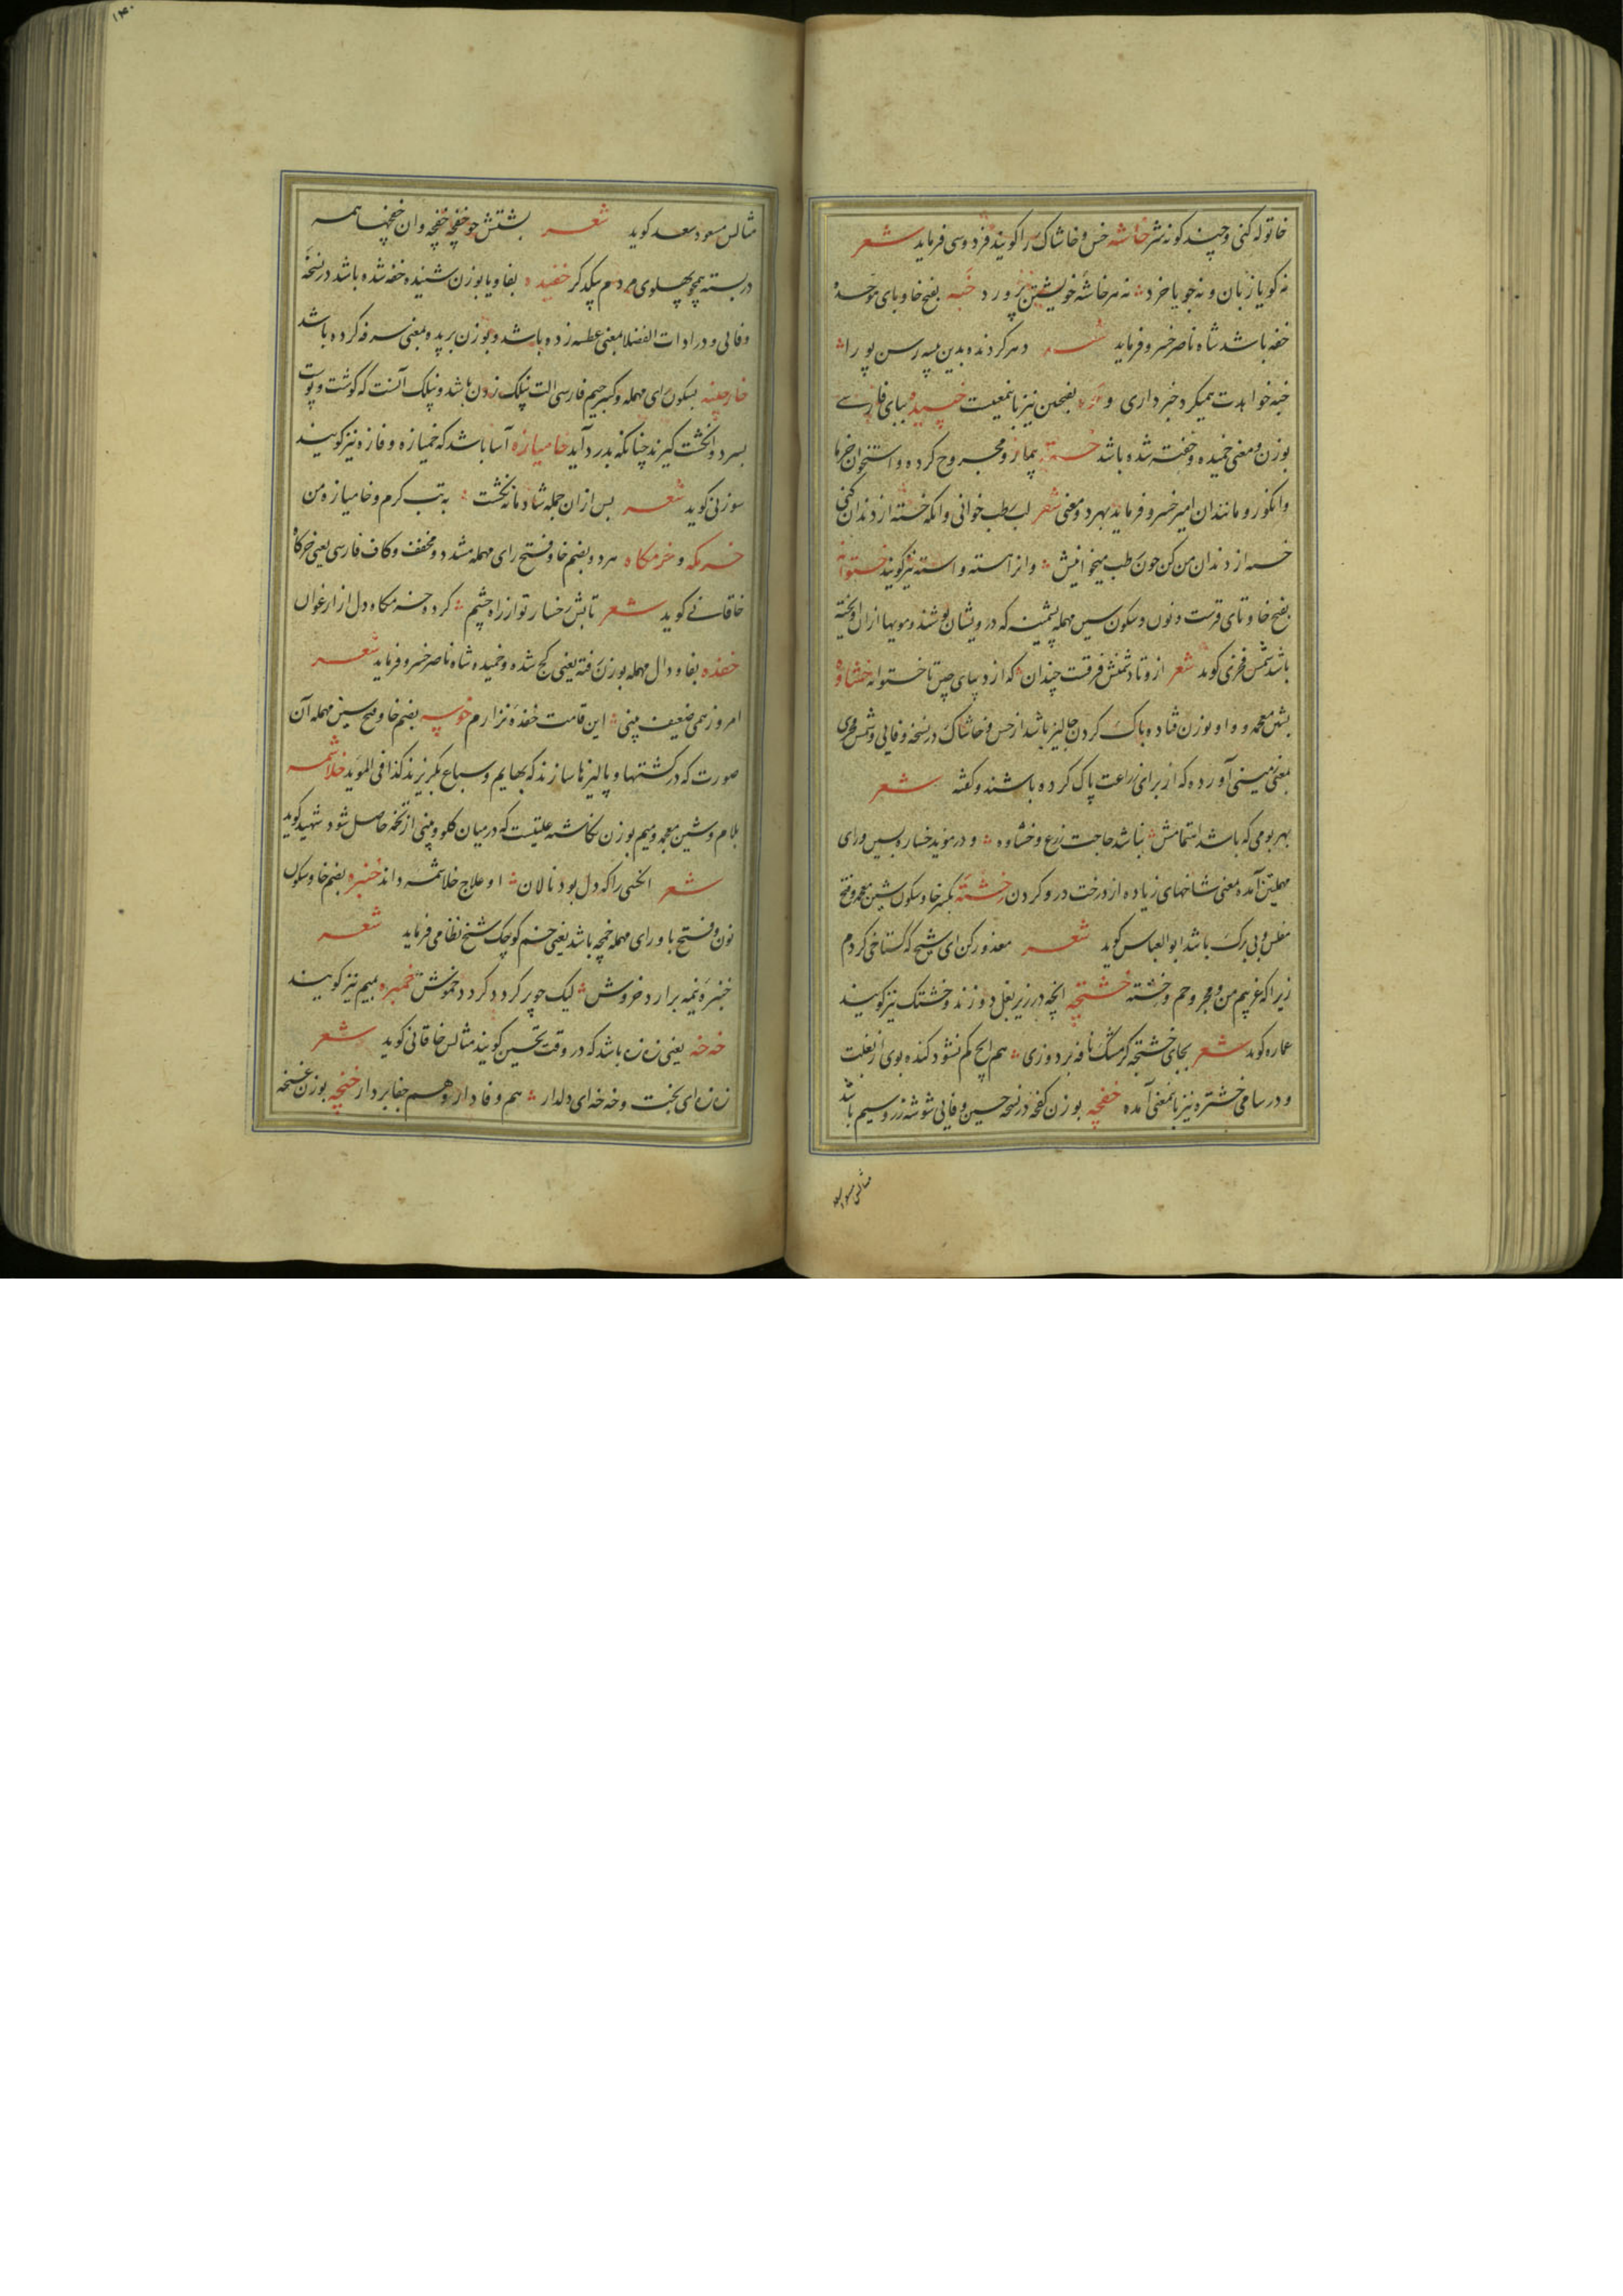 خاتوله کنی و چند کونه شر خاشه خس و خاشاک را کویند فردوسی فرماید شعر
نه کویا زبان و نه جویا خرد نه هر خاشه خویشتن پرورد خبه بفتح خا و بای موحده
خفه باشد شاه ناصر خسرو فرماید
خبه خواهدت همیکرد خبرداری و بفتحین نیز باینمعنیست خپیده ببای فارسی
بوزن و معنی خمیده و خفته شده باشد خسته بیمار و مجروح کرده و استخوان خرما
و انکور و مانند ان امیر خسرو فرماید بهر دو معنی شعر لب رطب خوانی وانکه خسته از دندان کنی
خسته از دندان من کن چون رطب میخوانیش وانرا هسته و استه نیز کویند خستوانه
بفتح خا و تای قرشت و نون و سکون سین مهمله پشمینه که درویشان پوشند و مویها ازان اویخته
باشد شمس فخری کوید شعر ازو تا دشمنش فرقست چندان که از دیبای چین تا خستوانه خشاوه
بشین معجمه و واو بوزن قتاده پاک کردن جالیز باشد از خس و خاشاک در نسخه وفایی و شمس فخری
بمعنی زمینی آورده که از برای زراعت پاک کرده باشند و کفته شعر
بهر بومی که باشد نباشد حاجت زرع و خشاوه و در موید خساره بسین و رای
مهملتین آمده بمعنی شاخهای زیاده از درخت درو کردن خشته بکسر خا و سکون شین معجمه و فتح
مفلس و بی برک باشد ابوالعباس کوید شعر معذور کن ای شیخ که کستاخی کردم
زیرا که غریبم من و مجروحم و خشته خشتچه انچه در زیر بغل دوزند و خشتک نیز کویند
عماره کوید شعر بجای خشتچه کر مشک نافه بردوزی هم ایچ کم نشود کنده بوی از بغلت
و در سامی خشتره نیز باینمعنی آمده خفچه بوزن کفچه در نسخه حسین وفایی شوشه زر و سیم باشد
مثالش مسعود
۱۴۰
مثالش مسعود سعد کوید شعر بشتش چو خفچه خفچه وان خفچها همه
در بسته همچو پهلوی مردم بیکدکر خفیده بفا و یا بوزن شنیده خفه شده باشد در نسخه
وفایی و در ادات الفضلا بمعنی عطسه زده باشد و بوزن برید و بمعنی سرفه کرده باشد
خارچینه بسکون رای مهمله و کسر جیم فارسی الت نیلک زدن باشد و نیلک آنست که کوشت و پوست
بسر دو انکشت کیرند چنانکه بدرد آید خامیازه آسا باشد که خمیازه و فازه نیز کویند
سوزنی کوید شعر بس از ان جمله شادمانه نخشت به تب کرم و خامیازه من
خرمکه و خرمکاه هر دو بضم خا و فتح رای مهمله مشدد و مخفف و کاف فارسی یعنی خرکاه
خاقانی کوید شعر تابش رخسار تو از راه چشم کرد و خرمکاه دل از ارغوان
خفده بفا و دال مهمله بوزن رفته یعنی کج شده و خمیده شاه ناصر خسرو فرماید شعر
امروز همی ضعیف بینی این قامت خفده نزارم خوسه بضم خا و فتح سین مهمله آن
صورت که در کشتها و پالیزها سازند که بهایم و سباع بکریزند کذا فی الموید خلاشمه
بلام و شین معجمه و میم بوزن نکاشته علتیست که در میان کلو و بینی از تخمه حاصل شود شهید کوید
شعر انکسی را که دل بود نالان او علاج خلاشمه داند خنبره بضم خا و سکون
نون و فتح با و رای مهمله خمچه باشد یعنی خم کوچک شیخ نظامی فرماید شعر
خنبره نیمه برارد خروش لیک چو پر کردد کردد خموش خمبره بمیم نیز کویند
خه خه یعنی زه زه باشد که در وقت تحسین کویند مثالش خاقانی کوید شعر
زه زه ای بخت و خه خه ای دلدار هم وفادار و هم جفا بردار خنچه بوزن غنچه